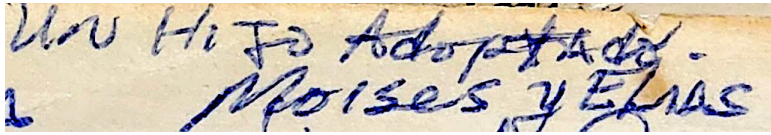 Un Hijo Adoptado.
Moises y Elias